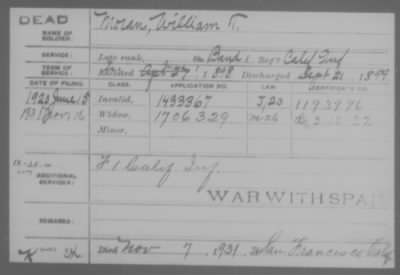 DEAD
NAME OF SOLDIER: Moran, William T.
SERVICE: Late rank, Co. Band 1 Reg't Calif Inf
TERM OF SERVICE: Enlisted Sept 27, 1898 Discharged Sept 21, 1899
DATE OF FILING. CLASS. APPLICATION NO. LAW. CERTIFICATE NO.
1920 June 15 Invalid, 1433367 J,20 1193976
Nov 16 Widow, 1706329 M-26
Minor,
ADDITIONAL SERVICES: F 1 Calif. Inf.
WAR WITH SPAIN
REMARKS:
Died Nov 7, 1931, at San Francisco Calif